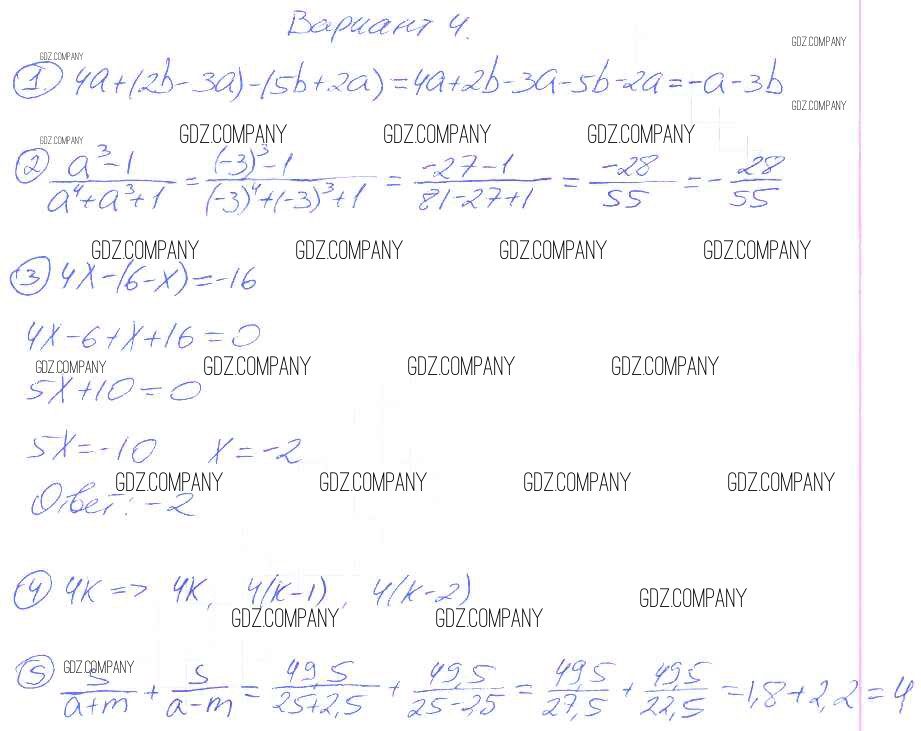 Вариант 4.
GDZ.COMPANY GDZ.COMPANY
① 4a+(2b-3a)-(5b+2a)=4a+2b-3a-5b-2a=-a-3b
GDZ.COMPANY
GDZ.COMPANY GDZ.COMPANY GDZ.COMPANY GDZ.COMPANY
② (a³-1)/(a⁴+a³+1) = ((-3)³-1)/((-3)⁴+(-3)³+1) = (-27-1)/(81-27+1) = -28/55 = -28/55
GDZ.COMPANY GDZ.COMPANY GDZ.COMPANY GDZ.COMPANY
③ 4x-(6-x)=-16
4x-6+x+16=0
GDZ.COMPANY GDZ.COMPANY GDZ.COMPANY GDZ.COMPANY
5x+10=0
5x=-10 x=-2
GDZ.COMPANY GDZ.COMPANY GDZ.COMPANY GDZ.COMPANY
Ответ: -2
④ 4k => 4k, 4(k-1), 4(k-2)
GDZ.COMPANY GDZ.COMPANY GDZ.COMPANY
GDZ.COMPANY
⑤ s/(a+m) + s/(a-m) = 49,5/(25+2,5) + 49,5/(25-2,5) = 49,5/27,5 + 49,5/22,5 = 1,8+2,2=4